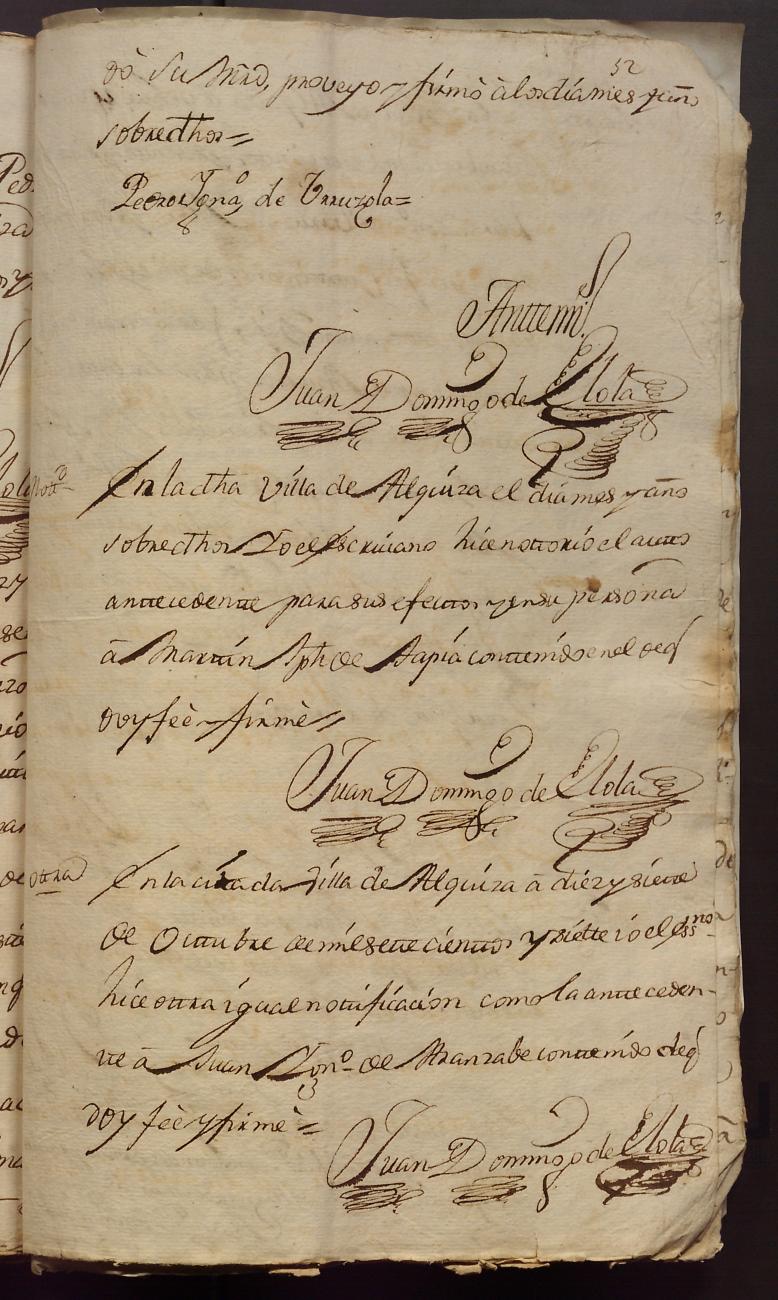 52
do Su Mrd, proveyo y firmò à los dia mes y año
sobredhos=
Pedro Ignaº de Urruzola=
Anttemi
Juan Domingo de Elola
Nottº
En la dha Villa de Alquiza el dia mes y año
sobredhos Yo el Escriuano hice nottorio el autto
anttecedente para sus efectos y en su persona
à Martin Jph de Sapia conttenido en el de q
doy feè y firmè=
Juan Domingo de Elola
ottra
En la citada Villa de Alquiza à diez y siette
de Octtubre de mil sette cientos y siette io el essno
hice ottra igual nottificacion como la anteceden-
tte à Juan de Aranzabe conttenido de q
doy feè y firmè=
Juan Domingo de Elola